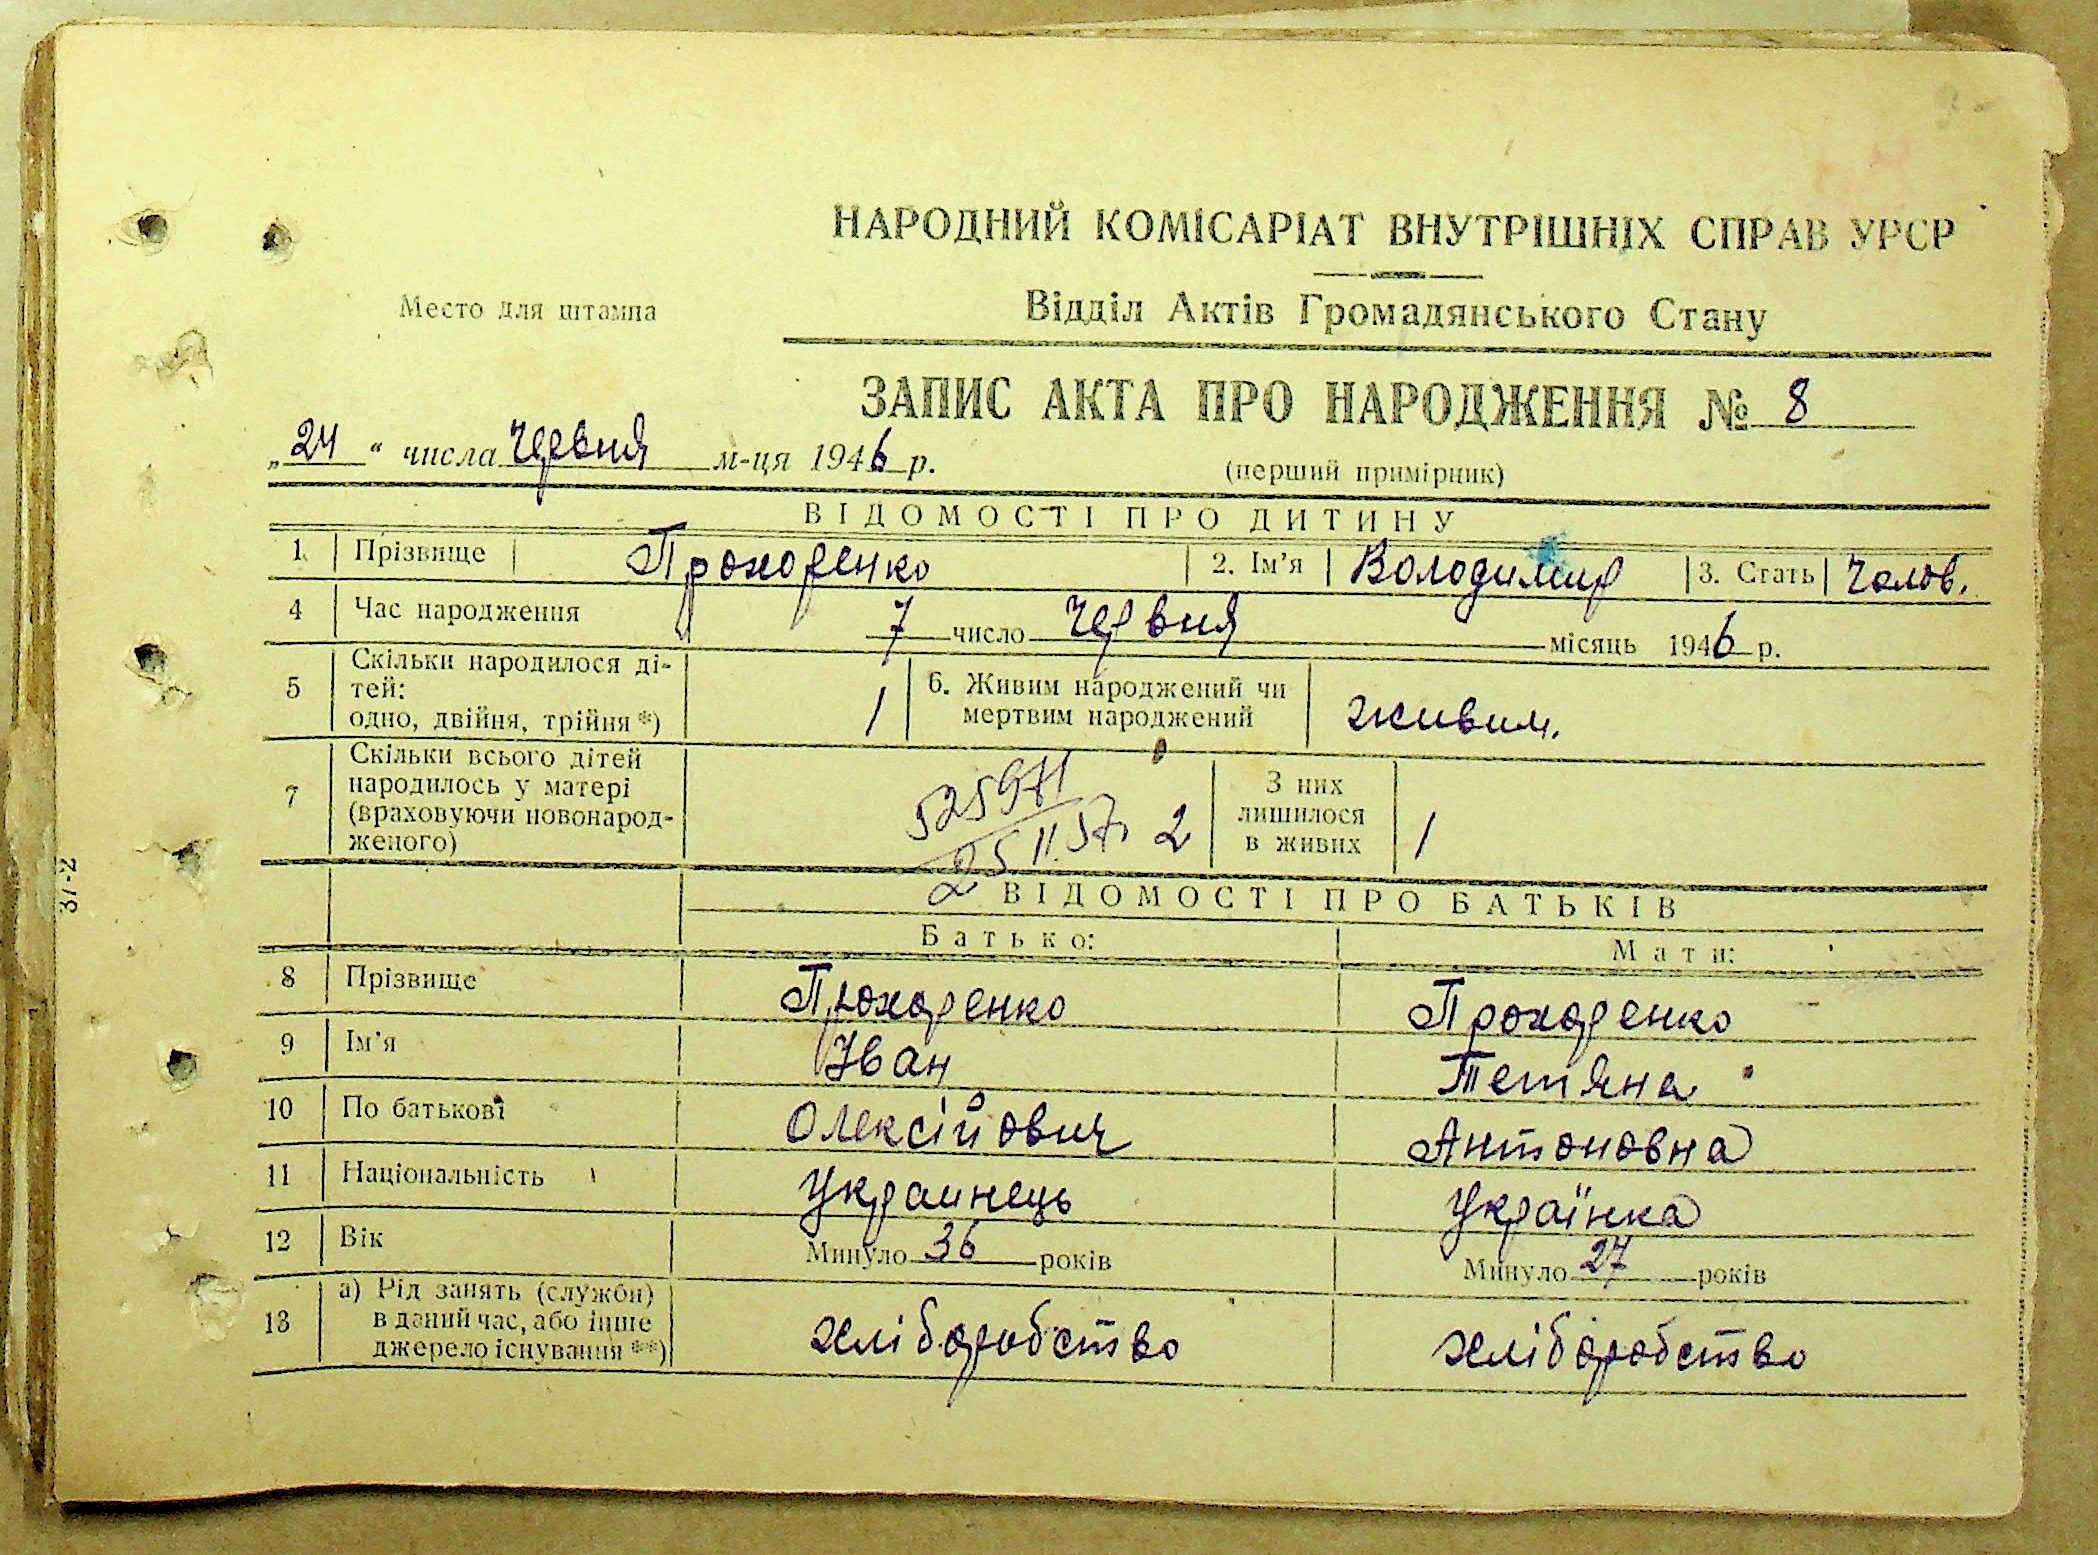 НАРОДНИЙ КОМІСАРІАТ ВНУТРІШНІХ СПРАВ УРСР
Место для штампа
Відділ Актів Громадянського Стану
ЗАПИС АКТА ПРО НАРОДЖЕННЯ № 8
„24“ числа червня м-ця 1946 р.
(перший примірник)
ВІДОМОСТІ ПРО ДИТИНУ
1. Прізвище Прохоренко 2. Ім'я Володимир 3. Стать чолов.
4 Час народження 7 число червня місяць 1946 р.
5 Скільки народилося ді-
тей:
одно, двійня, трійня *) 1
6. Живим народжений чи
мертвим народжений живим.
7 Скільки всього дітей
народилось у матері
(враховуючи новонарод-
женого) 2
25 II.57г
З них
лишилося
в живих 1
37-2
ВІДОМОСТІ ПРО БАТЬКІВ
Батько: Мати:
8 Прізвище Прохоренко Прохоренко
9 Ім'я Іван Тетяна
10 По батькові Олексійович Антоновна
11 Національність Украинець Українка
12 Вік Минуло 36 років Минуло 27 років
13 а) Рід занять (служби)
в даний час, або інше
джерело існування **) хліборобство хліборобство